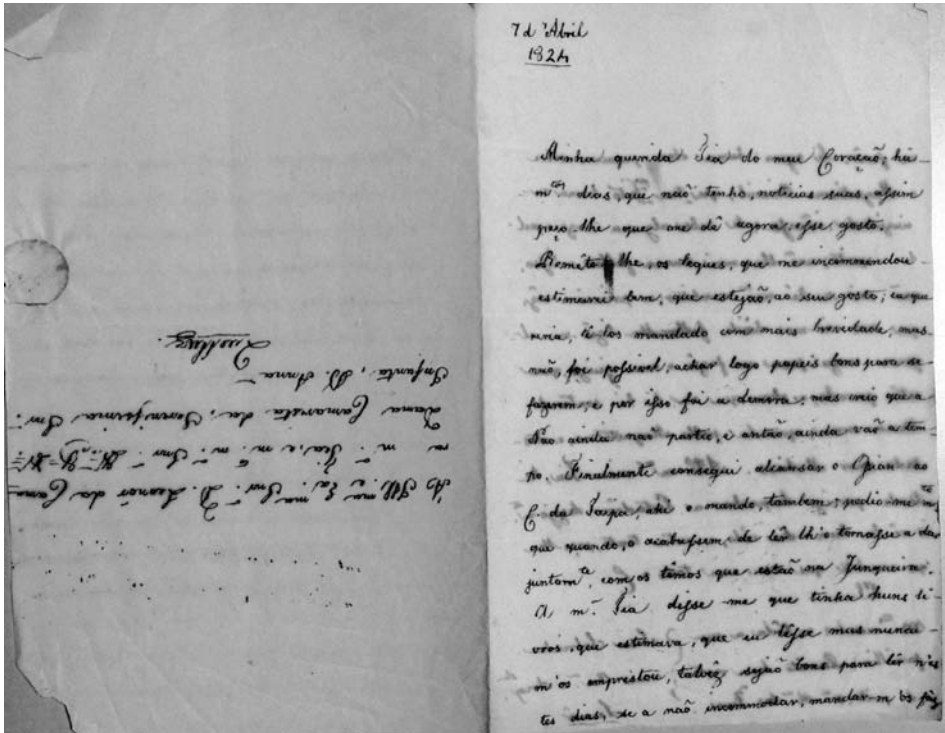 7 d' Abril
1824
Minha querida Tia do meu Coração, há
m.tos dias, que não tenho, noticias suas, assim
peço-lhe que me dê agora, esse gosto.
Remeto-lhe, os leques, que me incommendou
estimarei bem, que estejão, ao seu gosto, eu que
reria, tê-los mandado com mais brevidade, mas
não, foi possivel, achar logo papeis bons para se
fazerem, e por isso foi a demora, mas creio que a
Não ainda não partio, e então, ainda vão a tem
po. Finalmente consegui alcansar o
C. da Taipa, ahi o mando, tambem; pedio-me m.to
que quando, o acabassem, de lêr lh'o tornasse a dar
juntam.te com os tomos que estão na Junqueira.
A m.ª Tia disse-me que tinha huns li-
vros, que estimava, que eu lêsse mas nunca
m'os emprestou, talvez sejão bons para lêr n'es
tes dias, se a não incommodar, mandar-m'os
A Ill.ma e Ex.ma Snr.ª D. Leonor da Cama
ra m.ª Tia, e m. m. Snr.ª
Dama Camarista da, Serenissima Snr.ª
Infanta, D. Anna